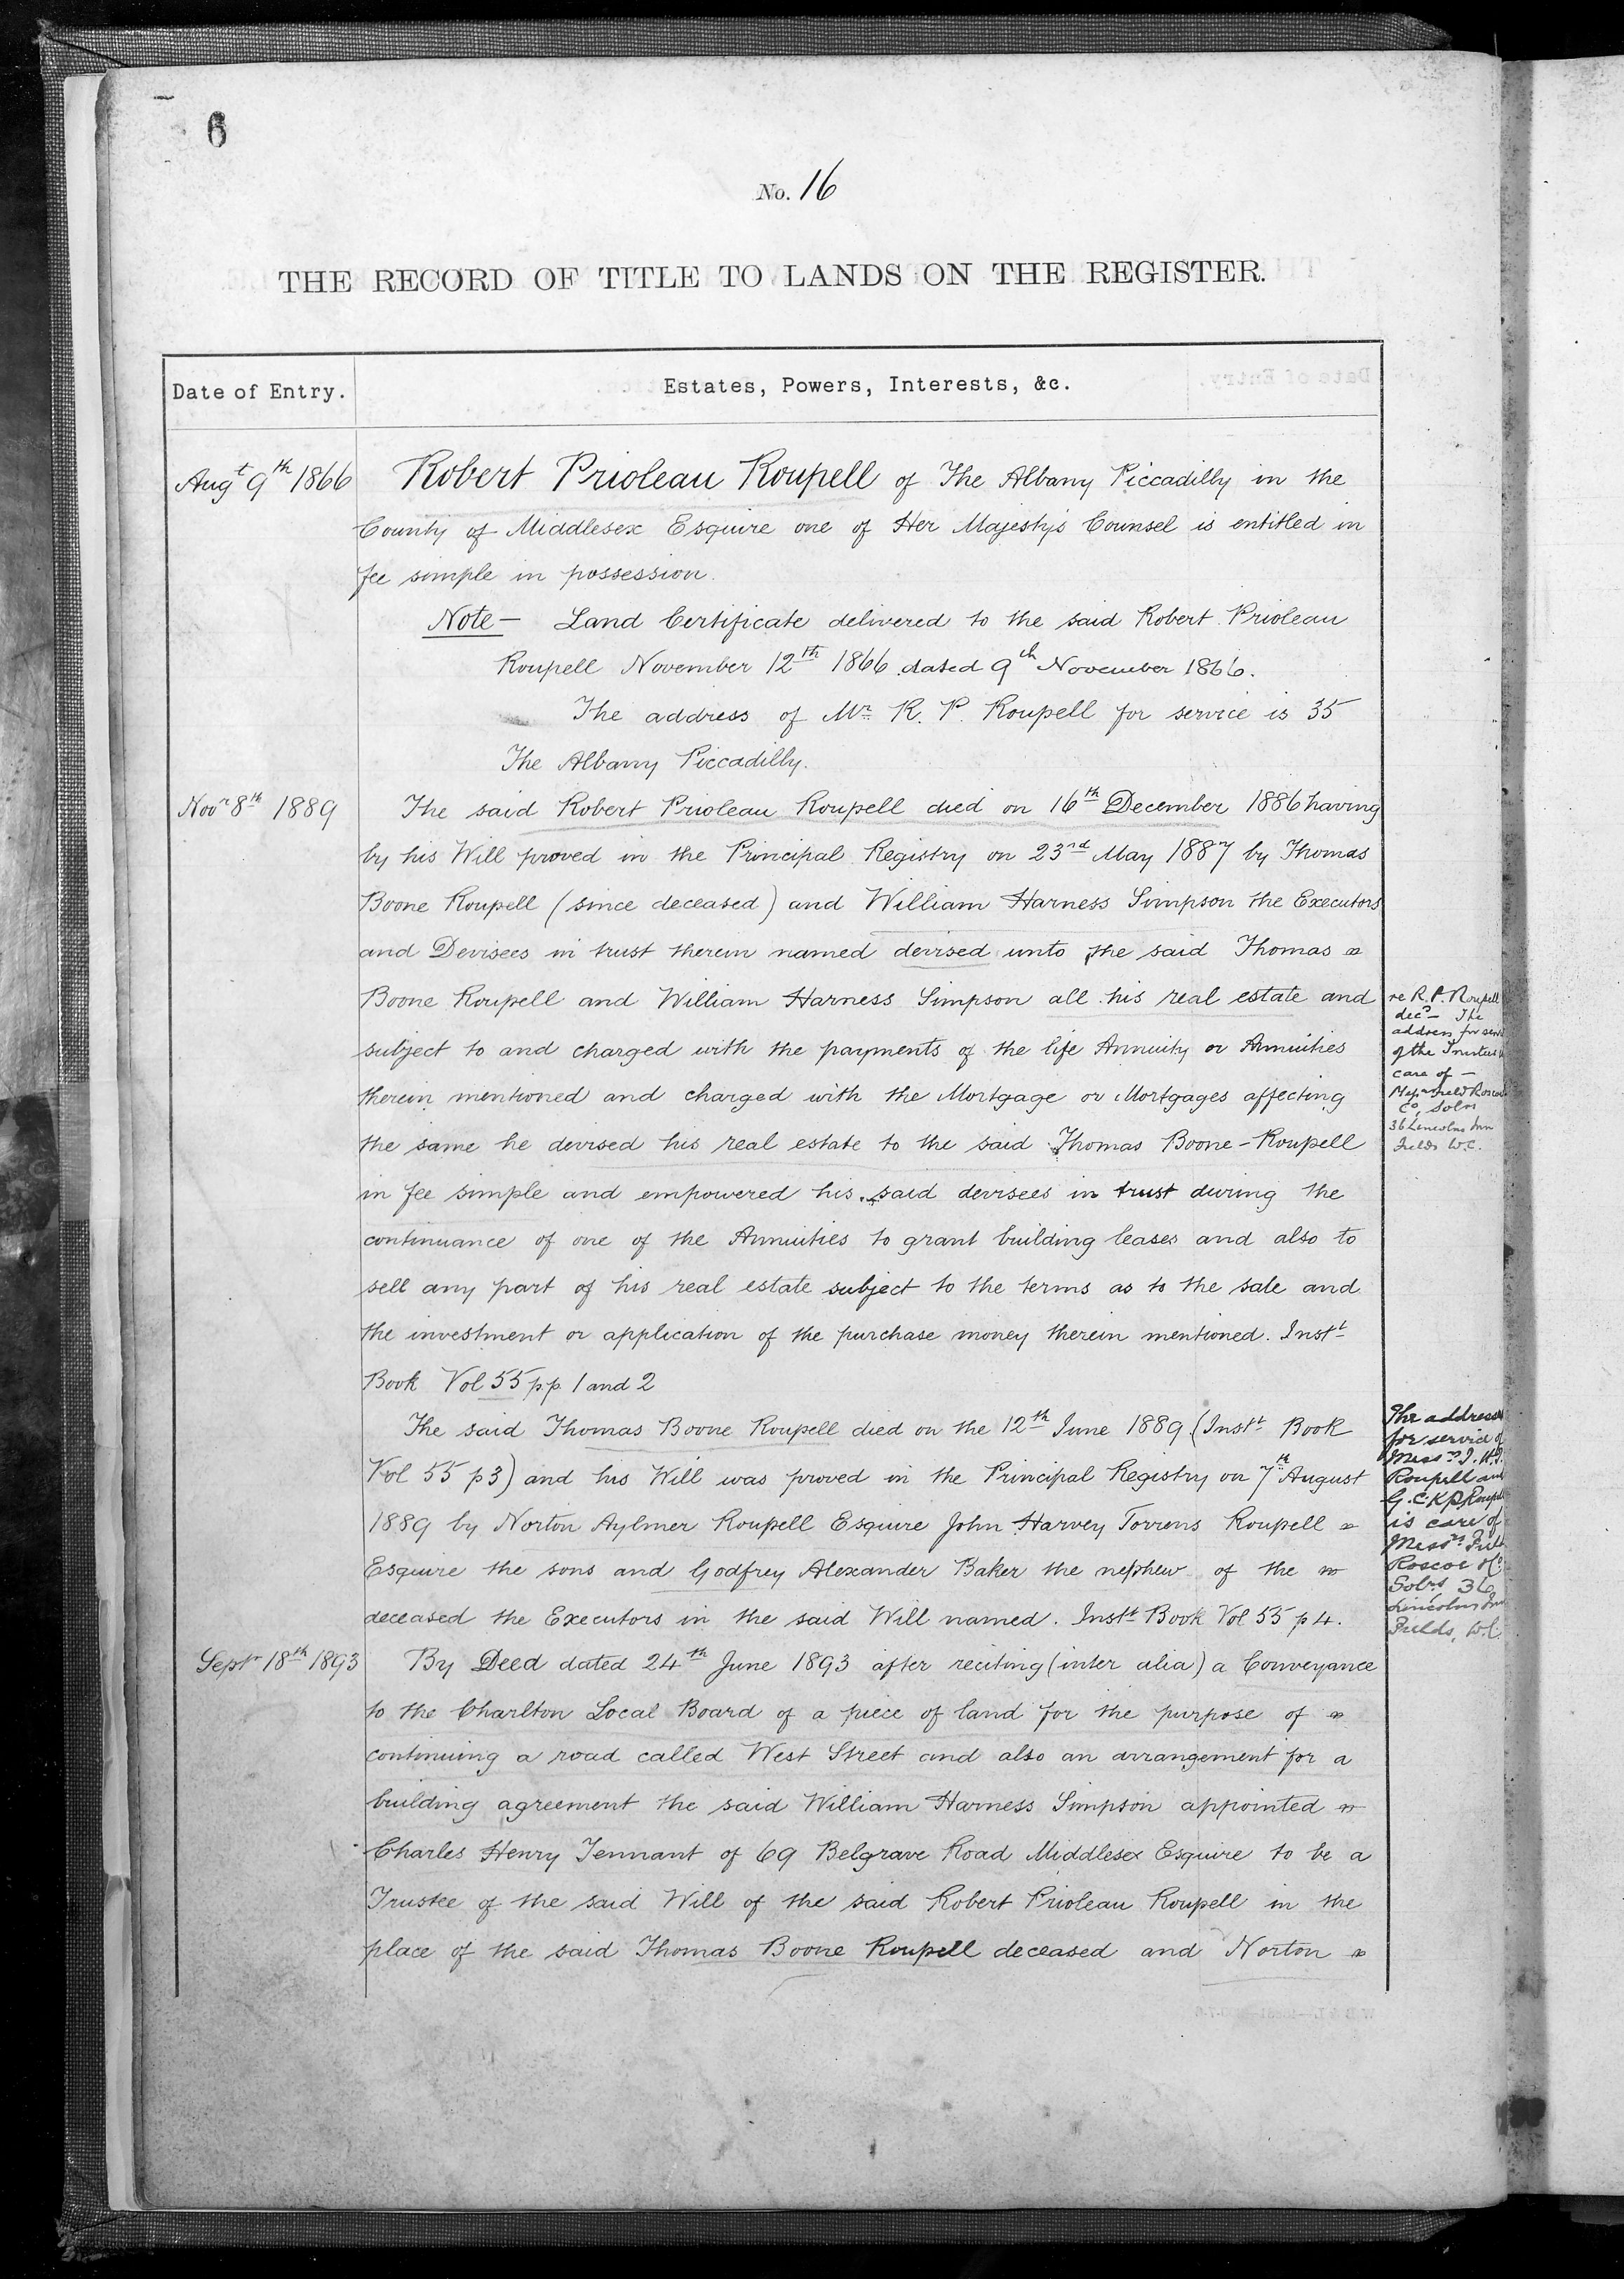 6
No. 16
THE RECORD OF TITLE TO LANDS ON THE REGISTER.
Date of Entry.
Estates, Powers, Interests, &c.
Augt 9th 1866
Robert Prioleau Roupell of The Albany Piccadilly in the
County of Middlesex Esquire one of Her Majesty's Counsel is entitled in
fee simple in possession.
Note — Land Certificate delivered to the said Robert Prioleau
Roupell November 12th 1866 dated 9th November 1866.
The address of Mr R. P. Roupell for service is 35
The Albany Piccadilly.
Novr 8th 1889
The said Robert Prioleau Roupell died on 16th December 1886 having
by his Will proved in the Principal Registry on 23rd May 1887 by Thomas
Boone Roupell (since deceased) and William Harness Simpson the Executors
and Devisees in trust therein named devised unto the said Thomas
Boone Roupell and William Harness Simpson all his real estate and
subject to and charged with the payments of the life Annuity or Annuities
therein mentioned and charged with the Mortgage or Mortgages affecting
the same he devised his real estate to the said Thomas Boone-Roupell
in fee simple and empowered his said devisees in trust during the
continuance of one of the Annuities to grant building leases and also to
sell any part of his real estate subject to the terms as to the sale and
the investment or application of the purchase money therein mentioned. Instt
Book Vol 55 pp. 1 and 2
re R. P. Roupell
decd — The
address for
of the Trustees
care of —
Co, Solrs
36 Lincolns Inn
Fields W.C.
The said Thomas Boone Roupell died on the 12th June 1889 (Instt Book
Vol 55 p3) and his Will was proved in the Principal Registry on 7th August
1889 by Norton Aylmer Roupell Esquire John Harvey Torrens Roupell
Esquire the sons and Godfrey Alexander Baker the nephew of the
deceased the Executors in the said Will named. Instt Book Vol 55 p 4.
The address
for service of
Messrs J. H. T.
Roupell and
G. C. K P. Roupell
is care of
Messrs
Roscoe & Co
Solrs 36
Lincolns Inn
Fields, W.C.
Septr 18th 1893
By Deed dated 24th June 1893 after reciting (inter alia) a Conveyance
to the Charlton Local Board of a piece of land for the purpose of
continuing a road called West Street and also an arrangement for a
building agreement the said William Harness Simpson appointed
Charles Henry Tennant of 69 Belgrave Road Middlesex Esquire to be a
Trustee of the said Will of the said Robert Prioleau Roupell in the
place of the said Thomas Boone Roupell deceased and Norton